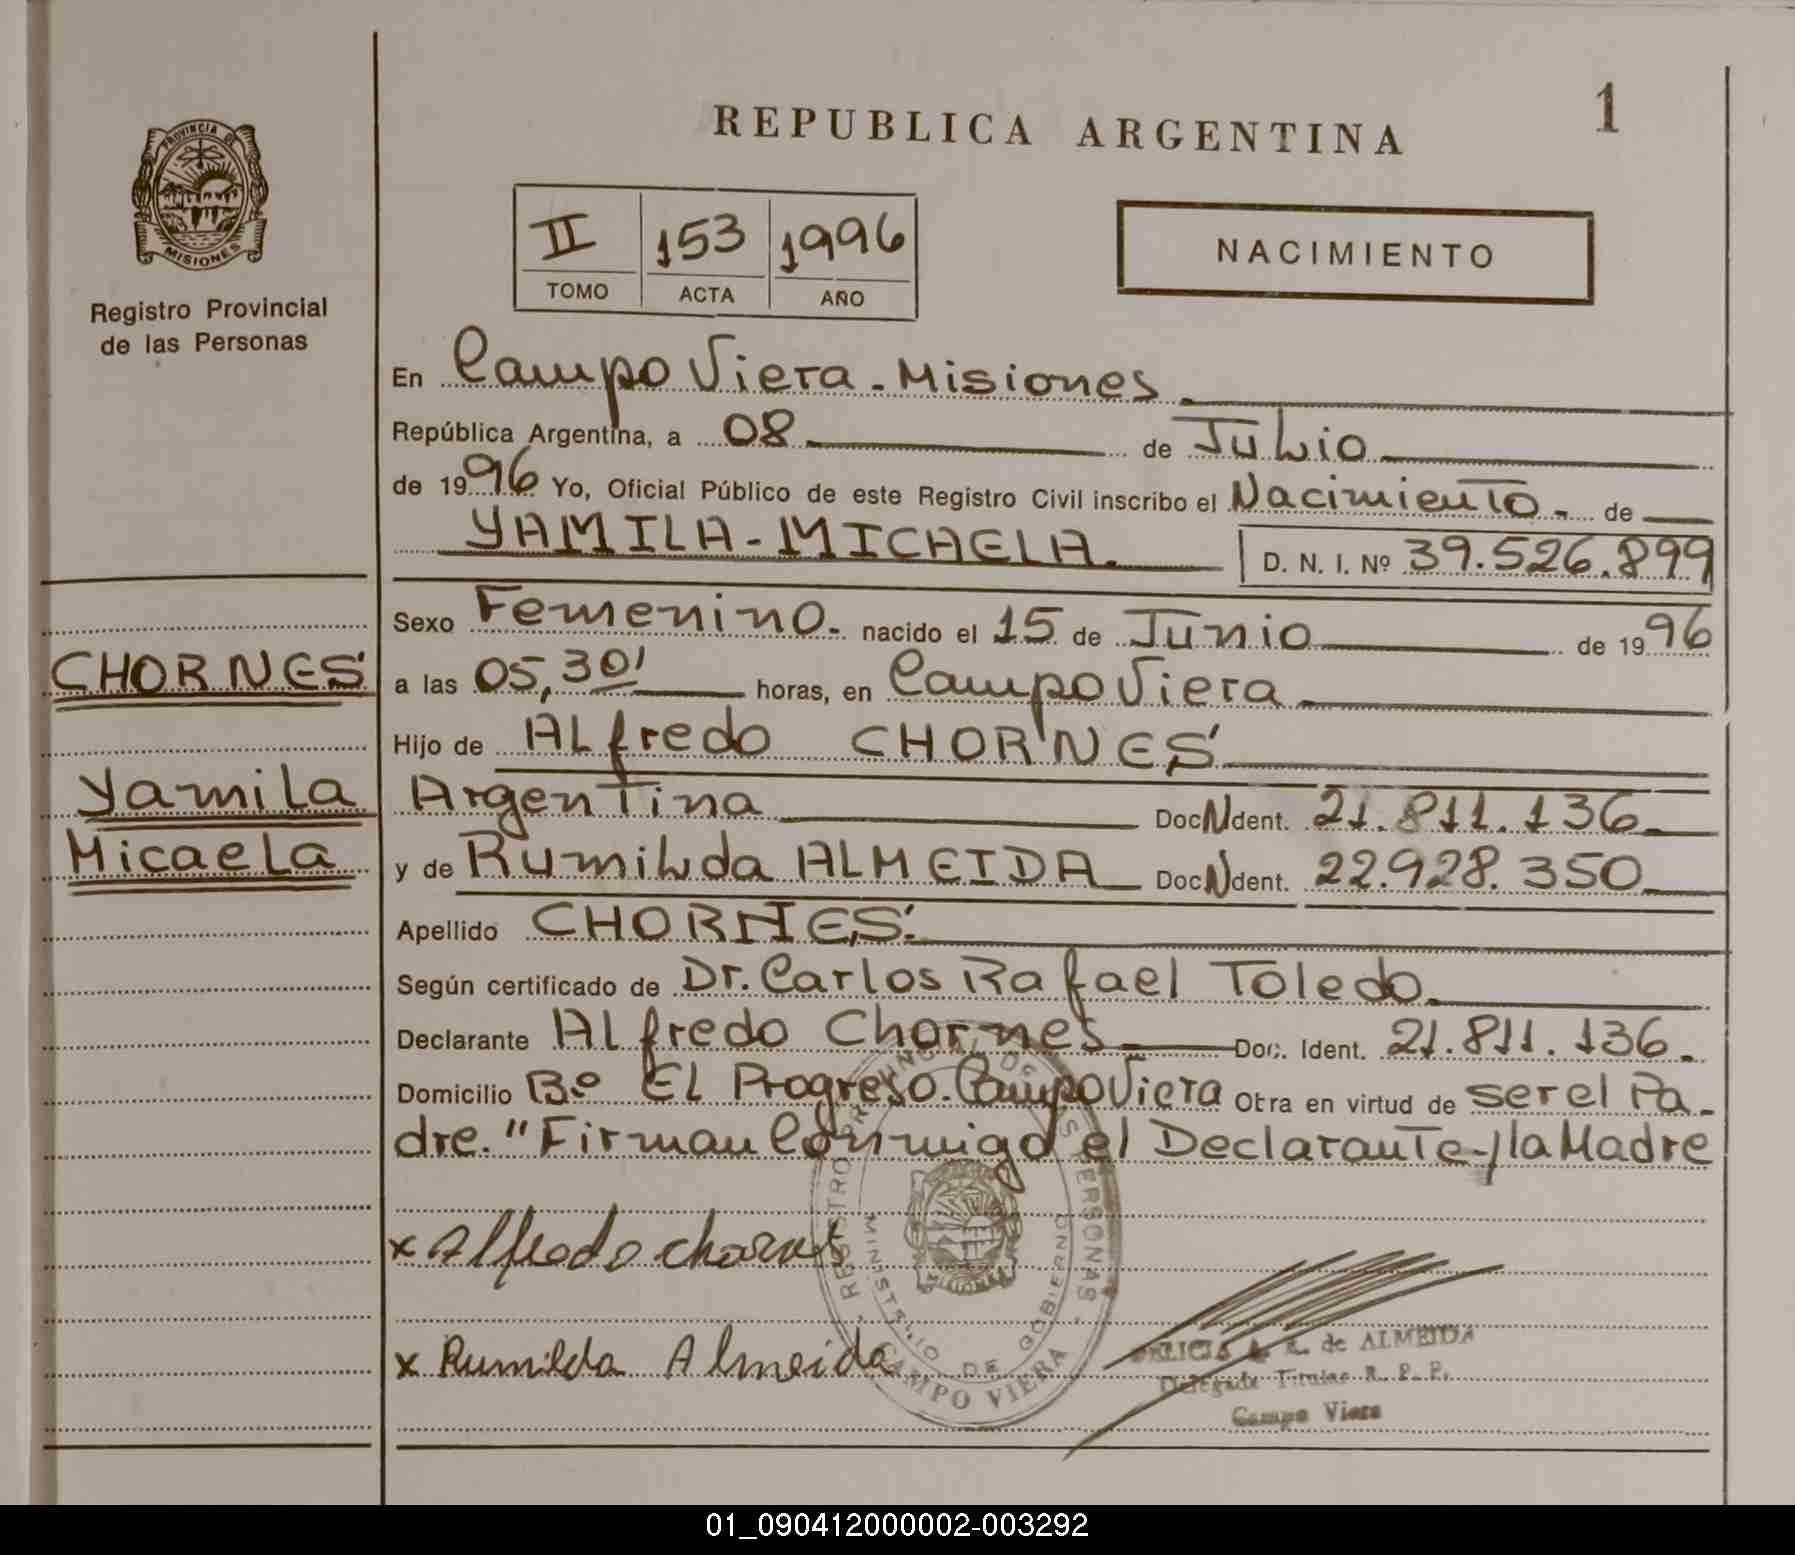 REPUBLICA ARGENTINA
1
PROVINCIA DE
MISIONES
Registro Provincial
de las Personas
II 153 1996
TOMO ACTA AÑO
NACIMIENTO
En Campo Viera - Misiones
República Argentina, a 08 de Julio
de 1996 Yo, Oficial Público de este Registro Civil inscribo el Nacimiento - de
YAMILA - MICAELA. D. N. I. Nº 39.526.899
Sexo Femenino. nacido el 15 de Junio de 1996
CHORNES
a las 05,30' horas, en Campo Viera
Hijo de Alfredo CHORNES
Yamila
Argentina Doc N dent. 21.811.136
Micaela
y de Rumilda ALMEIDA Doc N dent. 22.928.350
Apellido CHORNES.
Según certificado de Dr. Carlos Rafael Toledo.
Declarante Alfredo Chornes Doc. Ident. 21.811.136.
Domicilio Bº El Progreso. Campo Viera Otra en virtud de ser el Pa-
dre. "Firman Conmigo el Declarante y la Madre
x Alfredo chornes
REGISTRO PROVINCIAL DE LAS PERSONAS
MINISTERIO DE GOBIERNO
CAMPO VIERA
x Rumilda Almeida
de ALMEIDA
Delegada Titular R. P. P.
Campo Viera
01_090412000002-003292